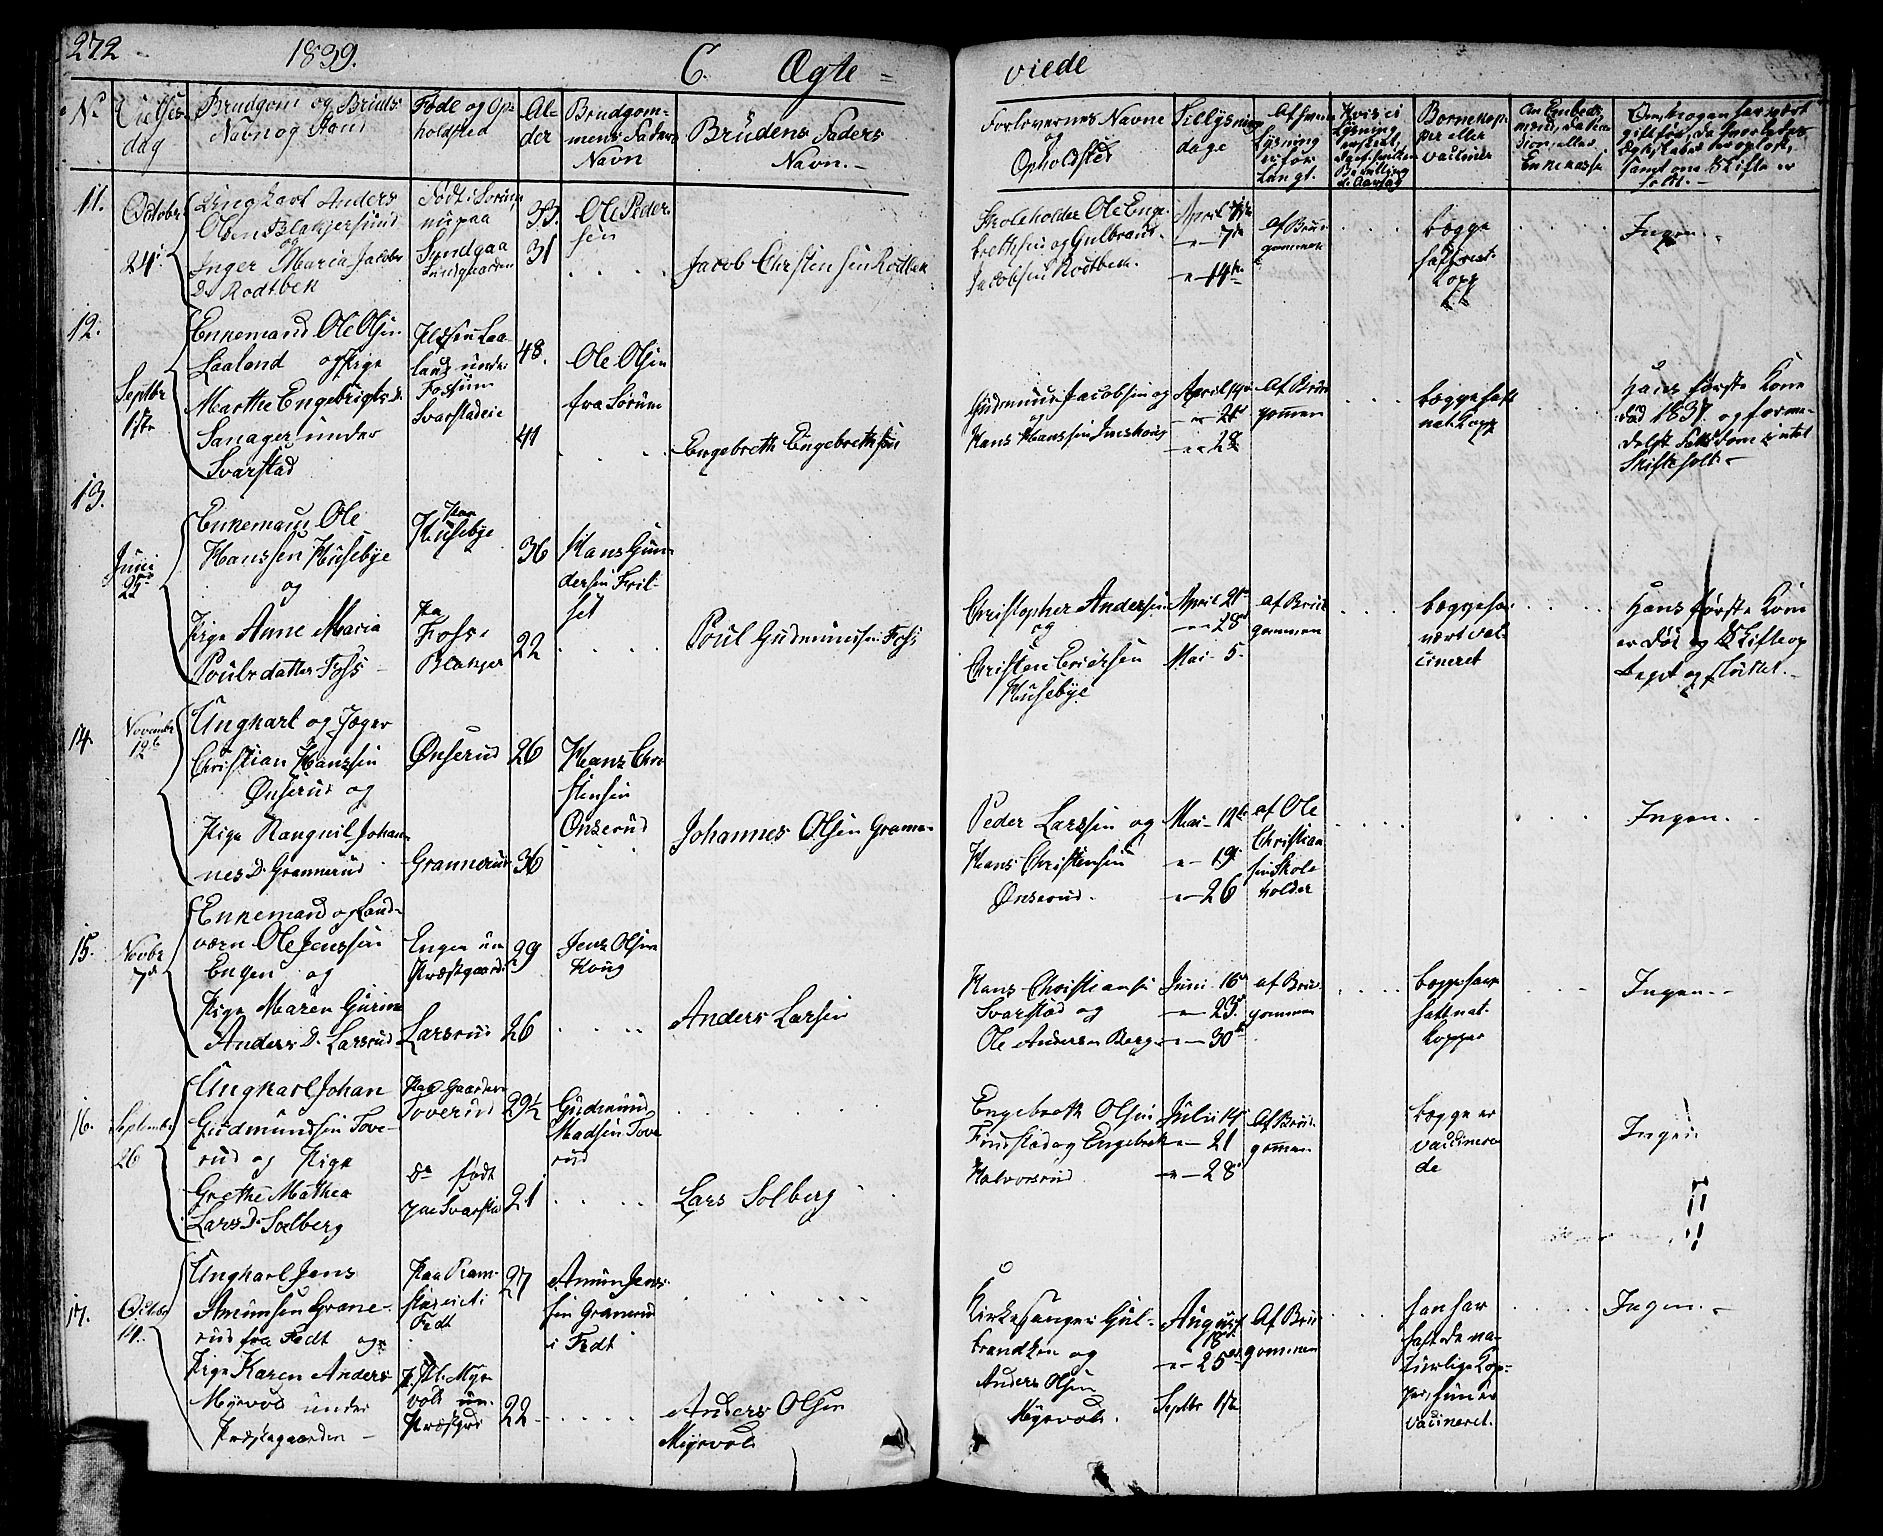 272
1839.
C. Ægte =
viede
No
Vielses
dag
Brudgom og Bruds
Navn og Stand
Føde og Op-
holdsted
Al-
der
Brudgom-
mens Faders
Navn
Brudens Faders
Navn.-
Forlovernes Navne
og
Opholdsted
Tillysnings
dage
Børnekop-
per eller
vaccinere
Enkekasse
11.
October
24
Ungkarl Anders
Olsen Blakjersund
og
Inger Maria Jacobs
D. Rodtbek
Født i Sørum
33.
31
Ole Peder-
sen
Jacob Christensen Rodbek
Skoleholder Ole Enge-
brethsen og Gulbrand
Jacobsen Rodtbek.
April
" - 7de
" - 14de
af Brud-
gommen
begge
Kopp
Ingen.
12.
Septbr
1ste
Enkemand Ole Olsen
Laaland og Pige
Marthe Engebrigts D.
Sanager under
Svarstad
Pladsen Laa-
land under
Fossum
Svarstadeie
48.
41
Ole Olsen
fra Sørum
Engebreth Engebrethsen
Gudmund Jacobsen og
Hans Hanssen
April
" - 21
" - 28
af Brud-
gommen
begge haft
nat. Kopp
Hans første Kone
død 1837 og forme-
Skifte holt.-
13.
Juni
25
Enkemand Ole
Hanssen Husebye
og
Pige Anne Maria
Poulsdatter Foss
Husebye
Paa
Foss i
Blakjer
36
22
Hans Gun-
dersen Fril-
set
Poul Gudmundsen Foss
Christopher Andersen
og
Christen Ericksen
Husebye
April 21
" - 28
Mai - 5.
af Brud
gommen
begge har
vært vac-
cineret
Hans første Kone
er død og Skifte op-
taget og sluttet.-
14.
Novembr
12te
Ungkarl og Jæger
Christian Hanssen
Ønserud og
Pige Rangnil Johan-
nes D. Grannerud
Ønserud
Grannerud
26
36
Hans Chri-
stensen
Onserud
Johannes Olsen Granne-
Peder Larssen og
Hans Christensen
Ønserud.
Mai - 12te
" - 19
" - 26
af Ole
Christian
sen Skole
holder
Ingen.
15.
Novbr
7de
Enkemand og Land-
værn Ole Jenssen
Engen og
Pige Maren Gurine
Anders D. Larsrud
Engen un
Præstgaard
Larsrud
29
26
Jens Olsen
Haug
Anders Larsen
Hans Christiansen
Svarstad og
Ole Andersen Berg.
Juni - 16
" - 23
" - 30te
af Brud-
gommen
begge have
haft nat.
Kopper
Ingen.-
16.
September
26
Ungkarl Johan
Gudmundsen Tove-
rud og Pige
Grethe Mathea
Lars D. Solberg
Paa Gaarden
Toverud
do født
paa Svarstad
29½
21
Gudmund
Madsen Tove
rud
Lars Solberg
Engebreth Olsen
Finstad og Engebreth
Halvorsrud
Julii 14
" - 21
" - 28
Af Brud-
gommen
begge er
vaccinere
de
Ingen
17.
October
14.
Ungkarl Jens
Amunsen Grane-
rud fra Fedt og
Pige Karen Anders
Myrvol under
Præstegaarden -
Paa Ram-
stadeiet i
Fedt
Pl. Myr-
vold un.
Præstgrd
27
22
Amun Jens-
sen Granerud
i Fedt
Anders Olsen
Myrvold
Kirkesanger Gul-
brandsen og
Anders Olsen
Myrvold.
August
18
" - 25
Septbr 1ste
Af Brud-
gommen
han har
haft de na-
turlige Kop-
per, hun er
vaccineret.
Ingen.-